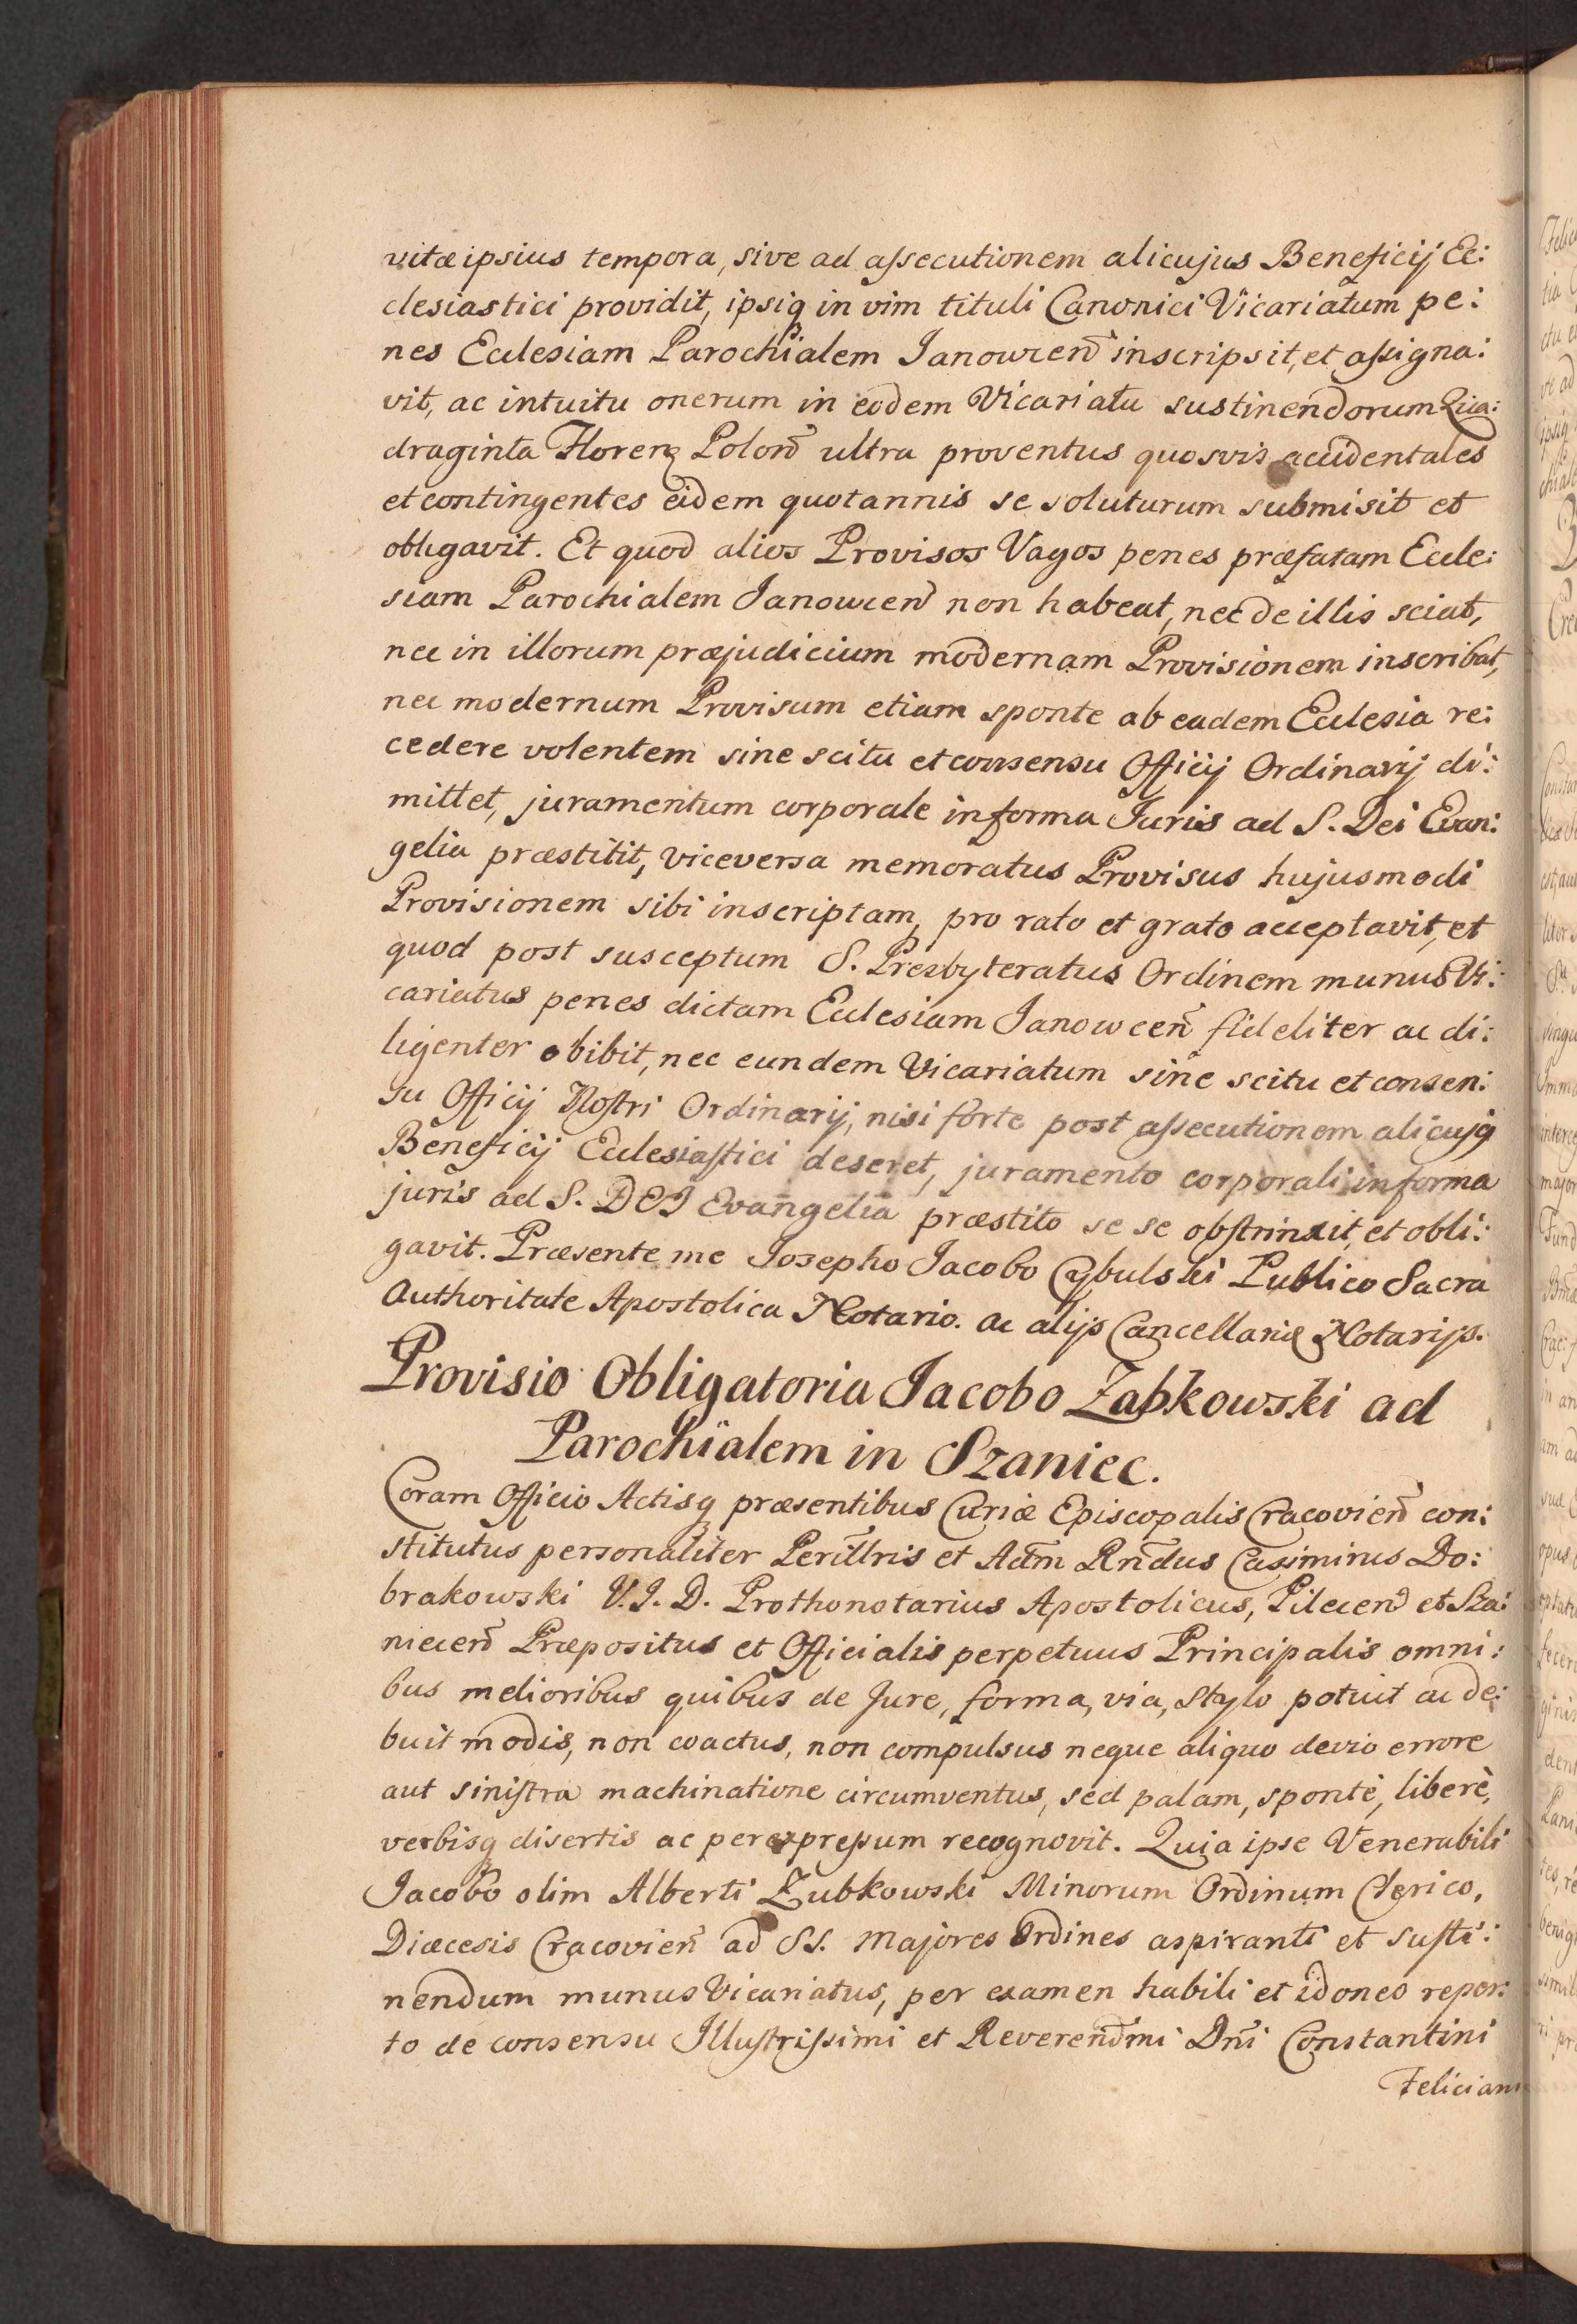 vitæ ipsius tempora, sive ad assecutionem alicujus Beneficij Ec:
clesiastici providit, ipsiq in vim tituli Canonici Vicariatum pe:
nes Ecclesiam Parochialem Janowcen̄ inscripsit, et assigna:
vit, ac intuitu onerum in eodem Vicariatu sustinendorum Qua:
draginta Floren Polon̄ ultra proventus quosvis accidentales
et contingentes eidem quotannis se soluturum submisit et
obligavit. Et quod alios Provisos Vagos penes præfatam Eccle:
siam Parochialem Janowcen̄ non habeat, nec de illis sciat,
nec in illorum præjudicium modernam Provisionem inscribat,
nec modernum Provisum etiam sponte ab eadem Ecclesia re:
cedere volentem sine scitu et consensu Officij Ordinarij di:
mittet, juramentum corporale in forma Juris ad S. Dei Evan:
gelia præstitit, viceversa memoratus Provisus hujusmodi
Provisionem sibi inscriptam, pro rato et grato acceptavit, et
quod post susceptum S. Presbyteratus Ordinem munus Vi:
cariatus penes dictam Ecclesiam Janowcen̄ fideliter ac di:
ligenter obibit, nec eundem Vicariatum sine scitu et consen:
su Officij Nostri Ordinarij, nisi forte post assecutionem alicujq
Beneficij Ecclesiastici deseret, juramento corporali in forma
juris ad S. DEI Evangelia præstito se se obstrinxit, et obli:
gavit. Præsente me Josepho Jacobo Cybulski Publico Sacra
Authoritate Apostolica Notario. ac alijs Cancellariæ Notarijs.
Provisio Obligatoria Jacobo Zabkowski ad
Parochialem in Szaniec.
Coram Officio Actisq præsentibus Curiæ Episcopalis Cracovien̄ con:
stitutus personaliter Perill̄tris et Adm̄ Rn̄dus Casimirus Do:
brakowski V. J. D. Prothonotarius Apostolicus, Pilecen̄ et Sza:
niecen̄ Præpositus et Officialis perpetuus Principalis omni:
bus melioribus quibus de Jure, forma, via, stylo potuit ac de:
buit modis, non coactus, non compulsus neque aliquo devio errore
aut sinistra machinatione circumventus, sed palam, sponte, liberè,
verbisq disertis ac per expressum recognovit. Quia ipse Venerabili
Jacobo olim Alberti Zubkowski Minorum Ordinum Clerico,
Diæcesis Cracovien̄ ad SS. Majores Ordines aspiranti et susti:
nendum munus Vicariatus, per examen habili et idoneo reper:
to de consensu Illustrissimi et Reverendm̄i Dn̄i Constantini
Feliciani